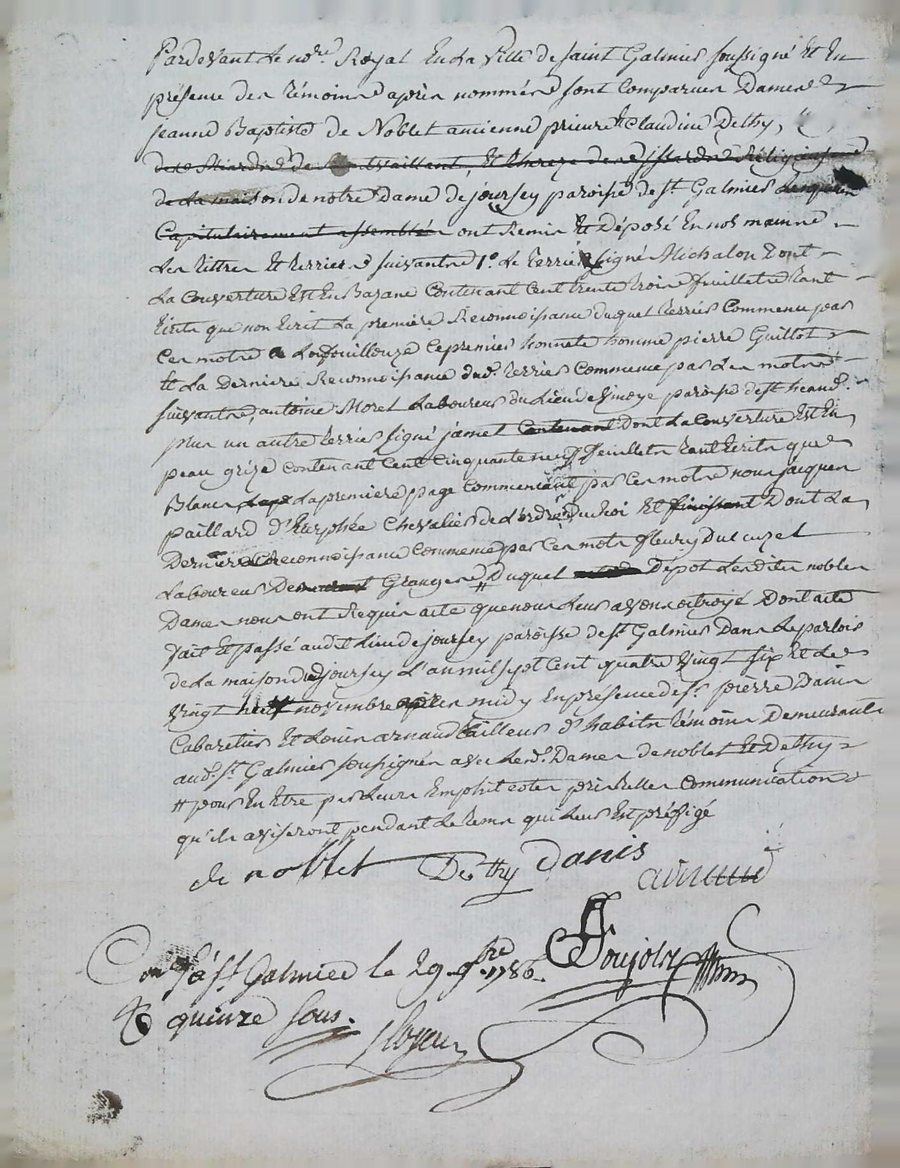 Pardevant Le nore. Royal En La Ville de saint Galmier soussigné Et En
présence des témoins après nommés sont comparues Dames
jeanne Baptiste de Noblet ancienne prieure & Claudine Dethy,
de vaillant, Et thereze de Réligieuses
de La maison de notre Dame de joursey paroisse de st. Galmier Lesquelles
Capitulairement assemblés ont Remis Et Déposé En nos mains
Les titres Et terriers suivants 1°. Le terrier signé Michalon Dont
La Couverture Est En Bazane Contenant Cent trente trois feuillets tant
Ecrits que non Ecrit La première Reconnoissance duquel terrier Commence par
Ces mots a Lafouillouze Le premier honnete homme pierre Guillot
Et La Derniere Reconnoissance dud. terrier Commence par Les mots
suivants, antoine Morel Laboureur du Lieu de paroisse de st.
plus un autre terrier signé jamet Contenant Dont La Couverture Est En
peau grize contenant Cent Cinquante neuf feuillets tant Ecrits que
Blancs La premiere page Commencant par Ces mots nous jacques
paillard D'Eurphée Chevalier de L'ordre du Roi Et finissant Dont La
Derniere Reconnoissance Commence par Ces mots fleury Ducuzel
Laboureur Demeurant Granger Duquel Dépot Lesdites nobles
Dames nous ont Requis acte que nous Leur avons octroyé Dont acte
fait Et passé audit Lieu de joursey paroisse de st. Galmier Dans Le parloir
de La maison de joursey L'an mil sept Cent quatre Vingt six Et Le
Vingt huit novembre après midy En présence de sr. pierre Danis
Cabaretier Et Louis arnaud tailleur D'habits témoins Demeurants
aud. st. Galmier soussignés avec Lesd. Dames de noblet Et Dethy
# pour En Etre par Leurs Emphiteotes pris telle Communication
qu'ils aviseront pendant Le tems qui Leur Est préfigé
de noblet Dethy Danis
arnaud
Ponjolx
Con à st. Galmier le 29 9bre 1786.
quinze sous.